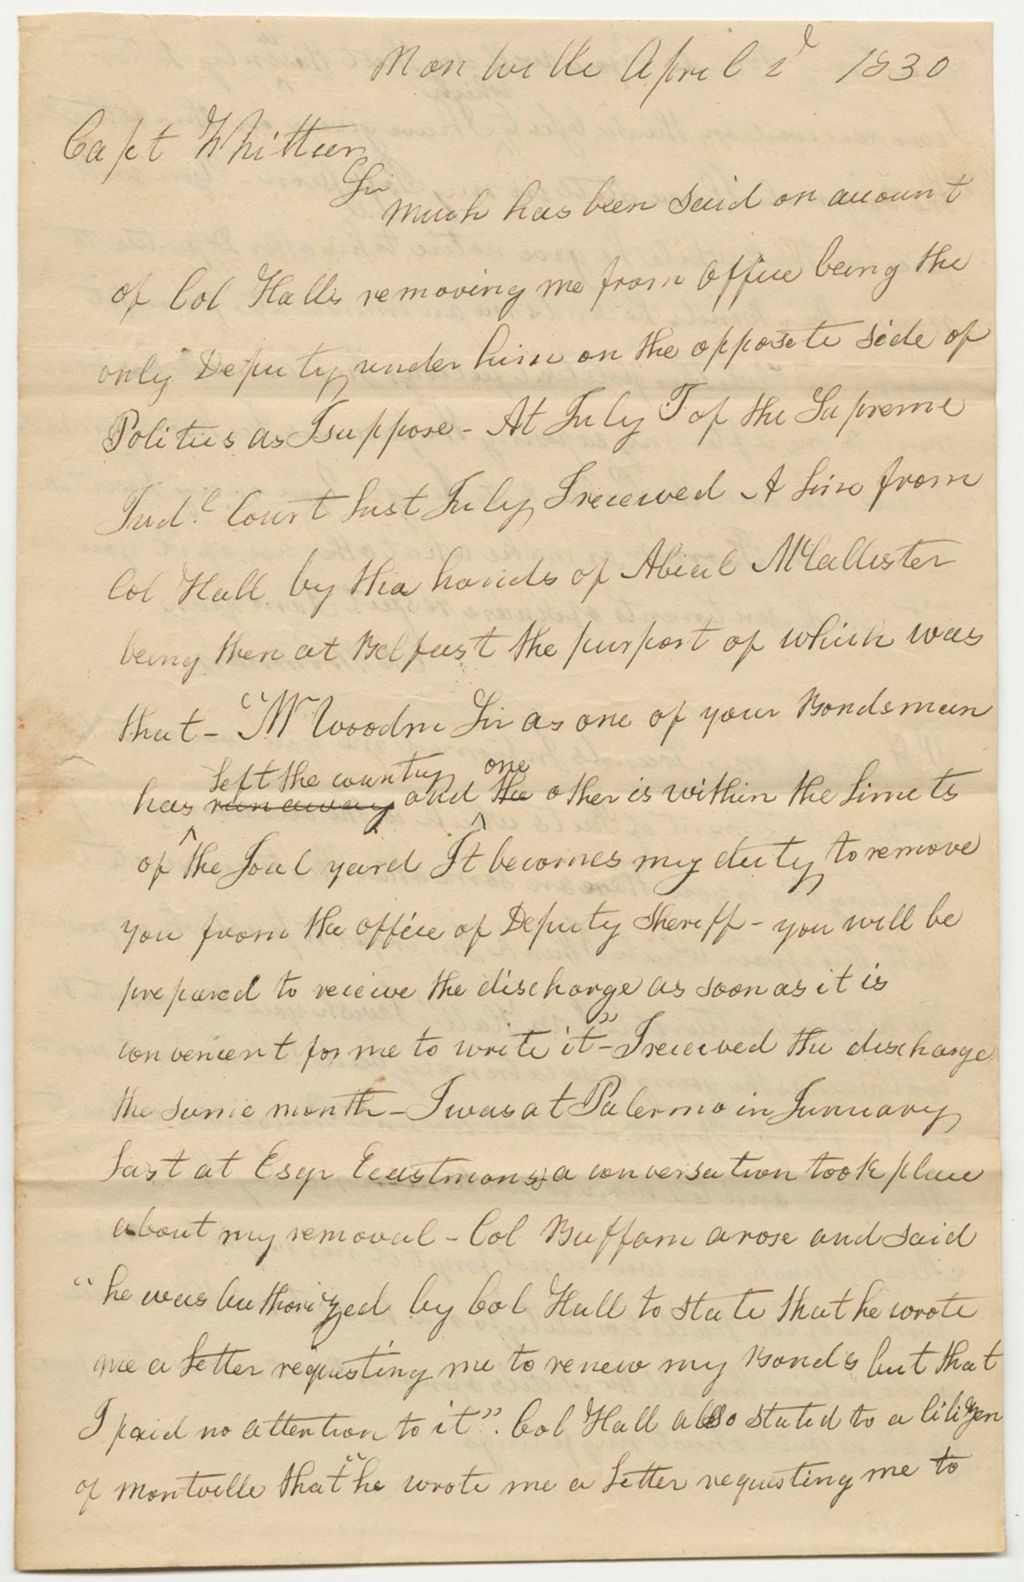 Montville April 2d 1830
Capt Whitten
Sir
Much has been said on account
of Col Halls removing me from office being the
only Deputy under him on the opposite side of
Politics as I suppose - At July T of the Supreme
Judl. Court last July I received A line from
Col Hall by the hands of Abial McCallister
being then at Belfast the purport of which was
that - "Mr Woodm Sir as one of your Bondsmen
left the country one
has run away and the other is within the limets
of the Joal yard It becomes my duty to remove
you from the office of Deputy Sheriff - you will be
prepared to receive the discharge as soon as it is
convenient for me to write it" - I received the discharge
the same month - I was at Palermo in January
last at Esqr Eastmans, a conversation took place
about my removal - Col Buffam arose and said
"he was authorized by Col Hall to state that he wrote
me a letter requesting me to renew my Bonds but that
I paid no attention to it". Col Hall also stated to a citizen
of Montville that "he wrote me a letter requesting me to